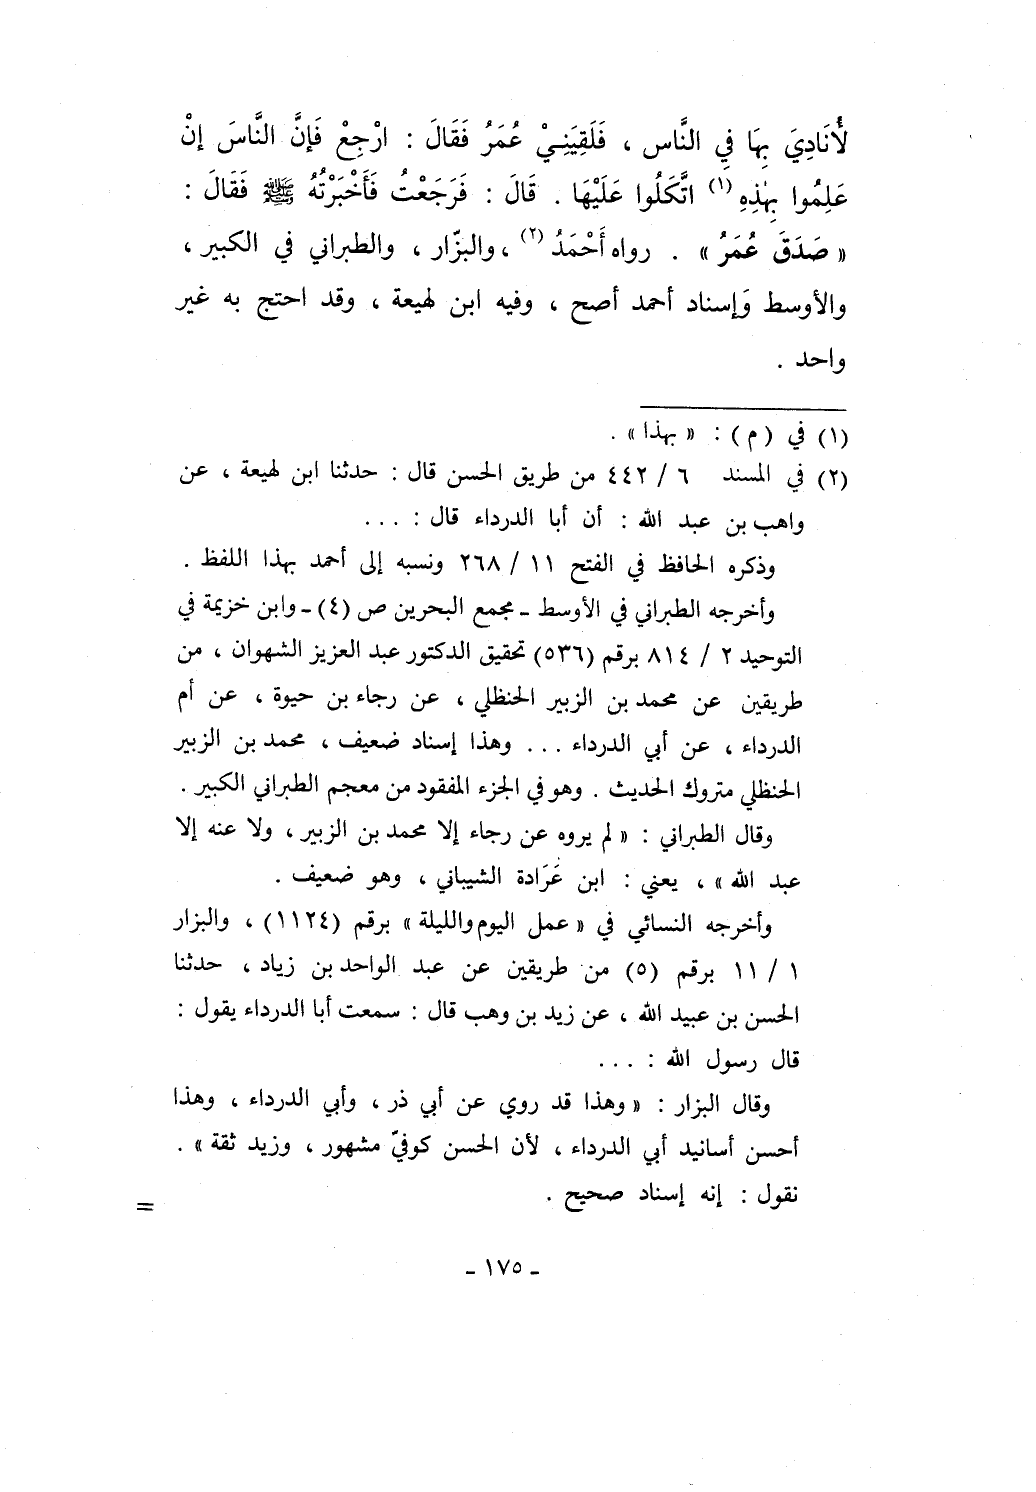 لأُنَادِيَ بِهَا فِي النَّاسِ ، فَلَقِيَنِيْ عُمَرُ فَقَالَ : ارْجِعْ فَإِنَّ النَّاسَ إِنْ
عَلِمُوا بِهٰذِهِ (١) اتَّكَلُوا عَلَيْهَا . قَالَ : فَرَجَعْتُ فَأَخْبَرْتُهُ ﷺ فَقَالَ :
« صَدَقَ عُمَرُ » . رواه أَحْمَدُ (٢) ، والبزّار ، والطبراني في الكبير ،
والأوسط وَإسناد أحمد أصح ، وفيه ابن لهيعة ، وقد احتج به غير
واحد .
(١) في ( م ) : « بهذا » .
(٢) في المسند ٦ / ٤٤٢ من طريق الحسن قال : حدثنا ابن لهيعة ، عن
واهب بن عبد الله : أن أبا الدرداء قال : ...
وذكره الحافظ في الفتح ١١ / ٢٦٨ ونسبه إلى أحمد بهذا اللفظ .
وأخرجه الطبراني في الأوسط ـ مجمع البحرين ص (٤) ـ وابن خزيمة في
التوحيد ٢ / ٨١٤ برقم (٥٣٦) تحقيق الدكتور عبد العزيز الشهوان ، من
طريقين عن محمد بن الزبير الحنظلي ، عن رجاء بن حيوة ، عن أم
الدرداء ، عن أبي الدرداء ... وهذا إسناد ضعيف ، محمد بن الزبير
الحنظلي متروك الحديث . وهو في الجزء المفقود من معجم الطبراني الكبير .
وقال الطبراني : « لم يروه عن رجاء إلا محمد بن الزبير ، ولا عنه إلا
عبد الله » ، يعني : ابن عَرَادة الشيباني ، وهو ضعيف .
وأخرجه النسائي في « عمل اليوم والليلة » برقم (١١٢٤) ، والبزار
١ / ١١ برقم (٥) من طريقين عن عبد الواحد بن زياد ، حدثنا
الحسن بن عبيد الله ، عن زيد بن وهب قال : سمعت أبا الدرداء يقول :
قال رسول الله : ...
وقال البزار : « وهذا قد روي عن أبي ذر ، وأبي الدرداء ، وهذا
أحسن أسانيد أبي الدرداء ، لأن الحسن كوفيّ مشهور ، وزيد ثقة » .
نقول : إنه إسناد صحيح .
=
ـ ١٧٥ ـ